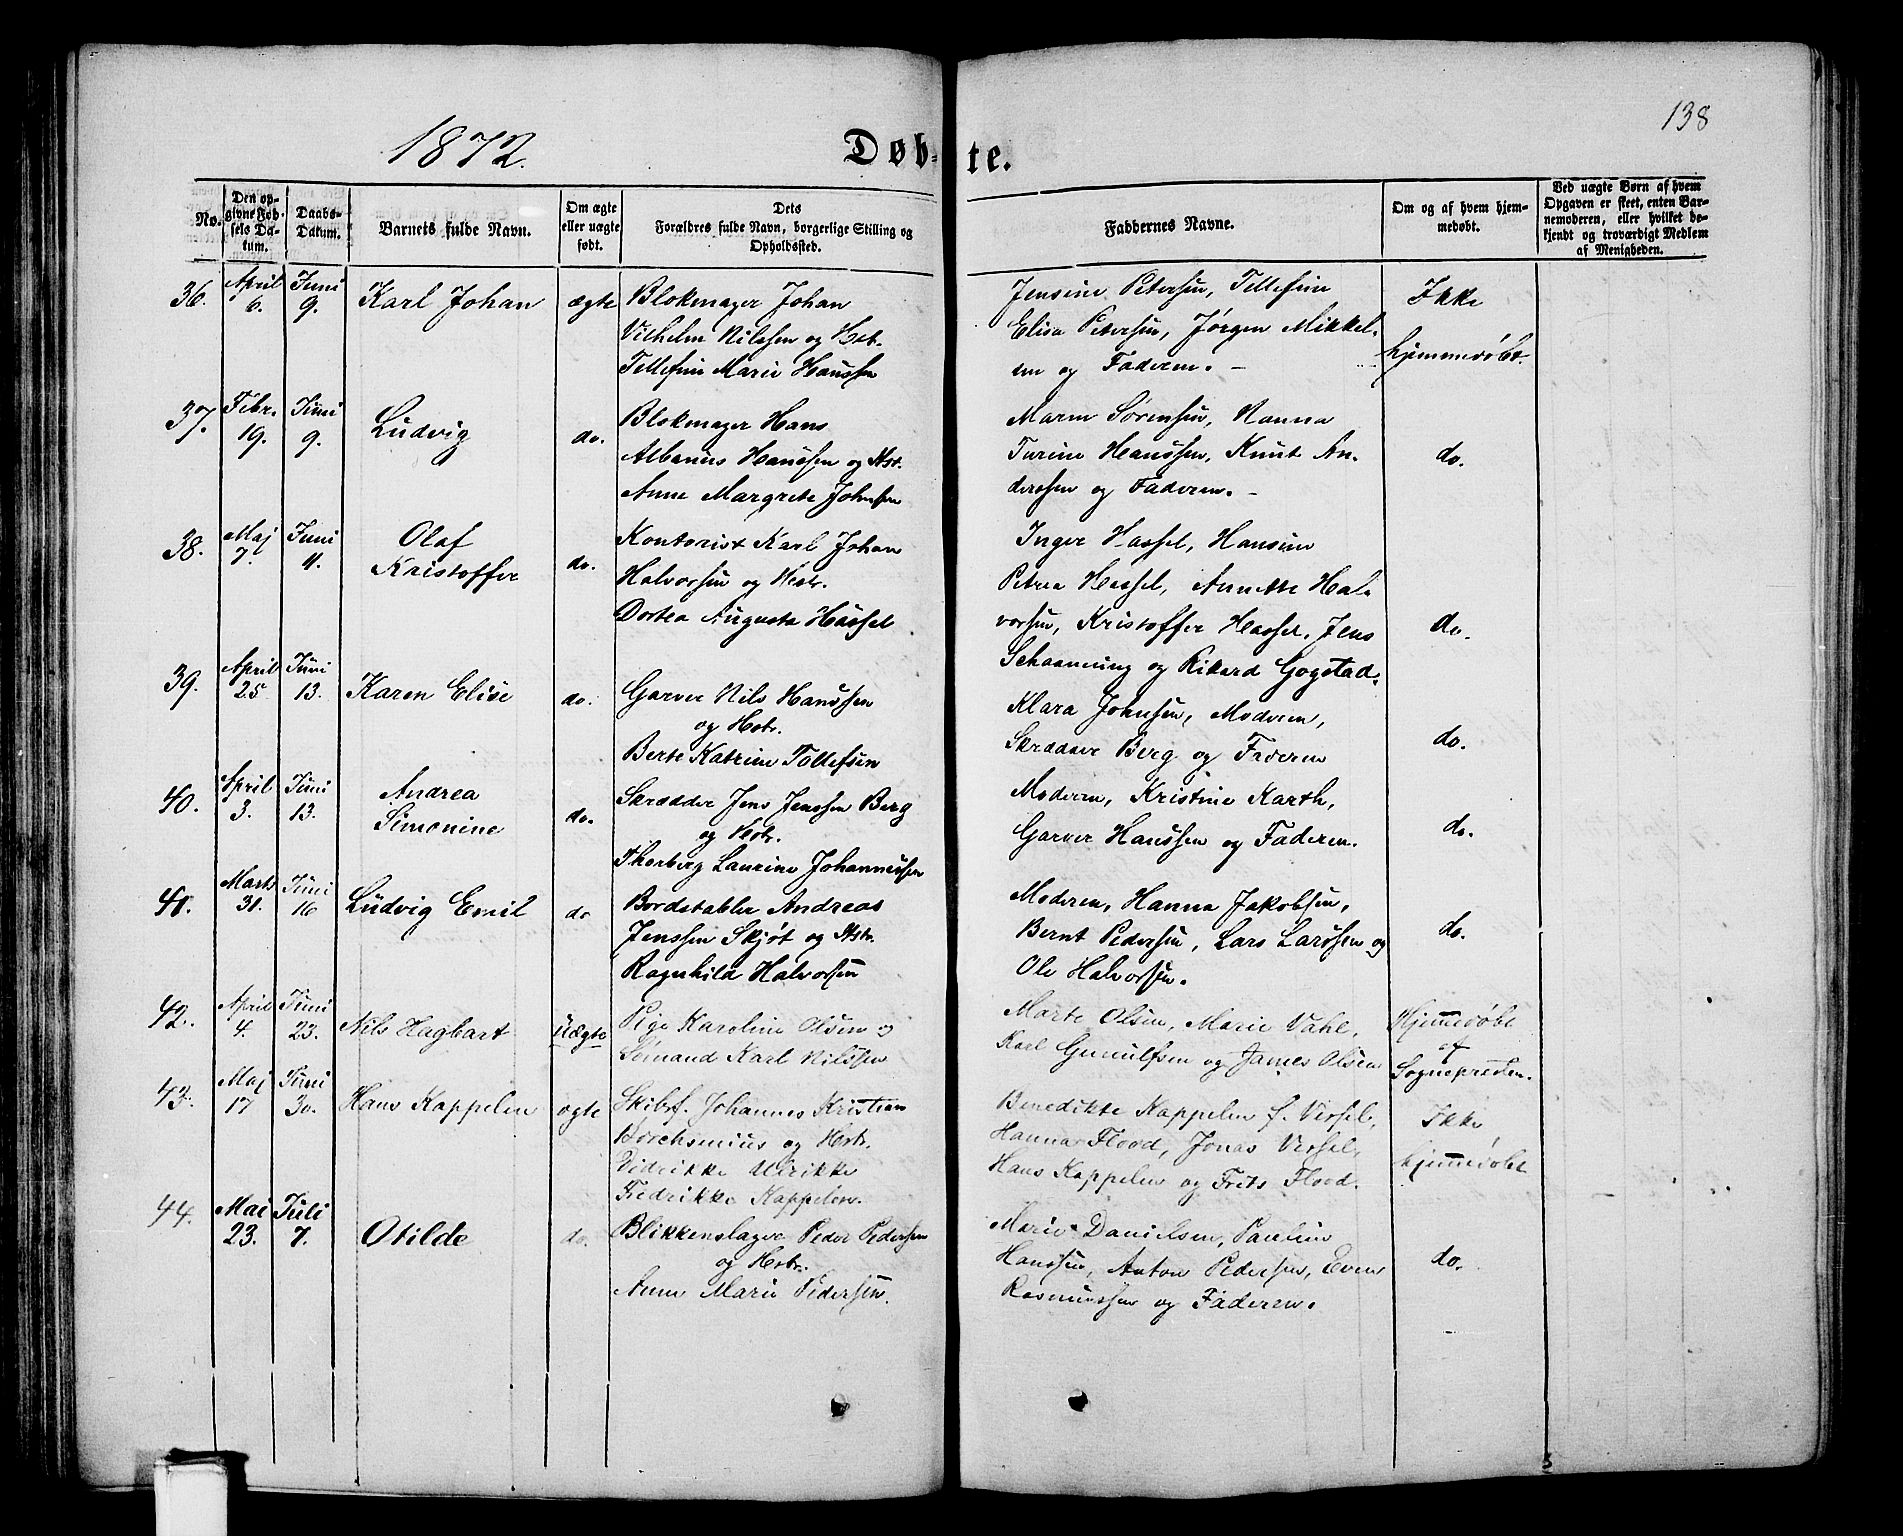 1872.
Døb-te.
138
No.
Den op-
givne Fød-
sels Da-
tum.
Daabs-
Datum.
Barnets fulde Navn.
Om ægte
eller uægte
født.
Dets
Forældres fulde Navn, borgerlige Stilling og
Opholdssted.
Faddernes Navne.
Om og af hvem hjem-
medøbt.
Ved uægte Børn af hvem
Opgaven er skeet, enten Bar-
nemoderen, eller hvilket be-
kjendt og troværdigt Medlem
af Menigheden.
36. April 6. Juni 9. Karl Johan ægte
Blokmager Johan
Vilhelm Nilssen og Hst.
Tellefine Marie Hanssen
Jensine Petersen, Tellefine
Elisa Petersen, Jørgen Mikkel-
sen og Faderen. -
Ikke
hjemmedøbt.
37. Febr. 19. Juni 9. Ludvig do.
Blokmager Hans
Albanus Hanssen og Hst.
Anne Margrete Johnsen
Maren Sørensen, Nanna
Turine Hanssen, Knut An-
derssen og Faderen. -
do.
38. Maj 7. Juni 11. Olaf
Kristoffer do.
Kontorist Karl Johan
Halvorsen og Hstr.
Dortea Augusta Hassel
Inger Hassel, Hansine
Petrea Hassel, Annette Hal-
vorsen, Kristoffer Hassel, Jens
Schaanning og Rikard Gogstad.
do.
39. April 25. Juni 13. Karen Elise do.
Garver Nils Hanssen
og Hstr.
Berte Katrine Tollefsen
Klara Johnsen, Moderen,
Skrædder Berg og Faderen
do.
40. April 3. Juni 13. Andrea
Simonine do.
Skrædder Jens Jenssen Berg
og Hstr.
Thorberg Laurine Johannessen
Moderen, Kristine Karth,
Garver Hanssen og Faderen.
do.
41. Marts 31. Juni 16 Ludvig Emil do
Bordstabler Andreas
Jenssen Skjøt og Hstr.
Ragnhild Halvorsen
Moderen, Hanna Jakobsen,
Bernt Pedersen, Lars Larssen og
Ole Halvorsen.
do.
42. April 4. Juni 23. Nils Hagbart uægte
Pige Karoline Olsen og
Sømand Karl Nilssen
Marte Olsen, Marie Vahl,
Karl Gunulfsen og James Olsen
Hjemmedøbt
af
Sognepresten.
43. Maj 17 Juni 30. Hans Kappelen ægte
Skibsf. Johannes Kristian
Borchsenius og Hstr.
Didrikke Ulrikke
Fredrikke Kappelen.
Benedikte Kappelen f. Versel,
Hanna Flood, Jonas Versel,
Hans Kappelen og Frits Flood.
Ikke
hjemmedøbt
44. Mai 23. Juli 7. Otilde do.
Blikkenslager Peder Pedersen
og Hstr.
Anne Marie Pedersen.
Marie Danielsen, Pauline
Hanssen, Anton Pedersen, Even
Rasmussen og Faderen.
do.